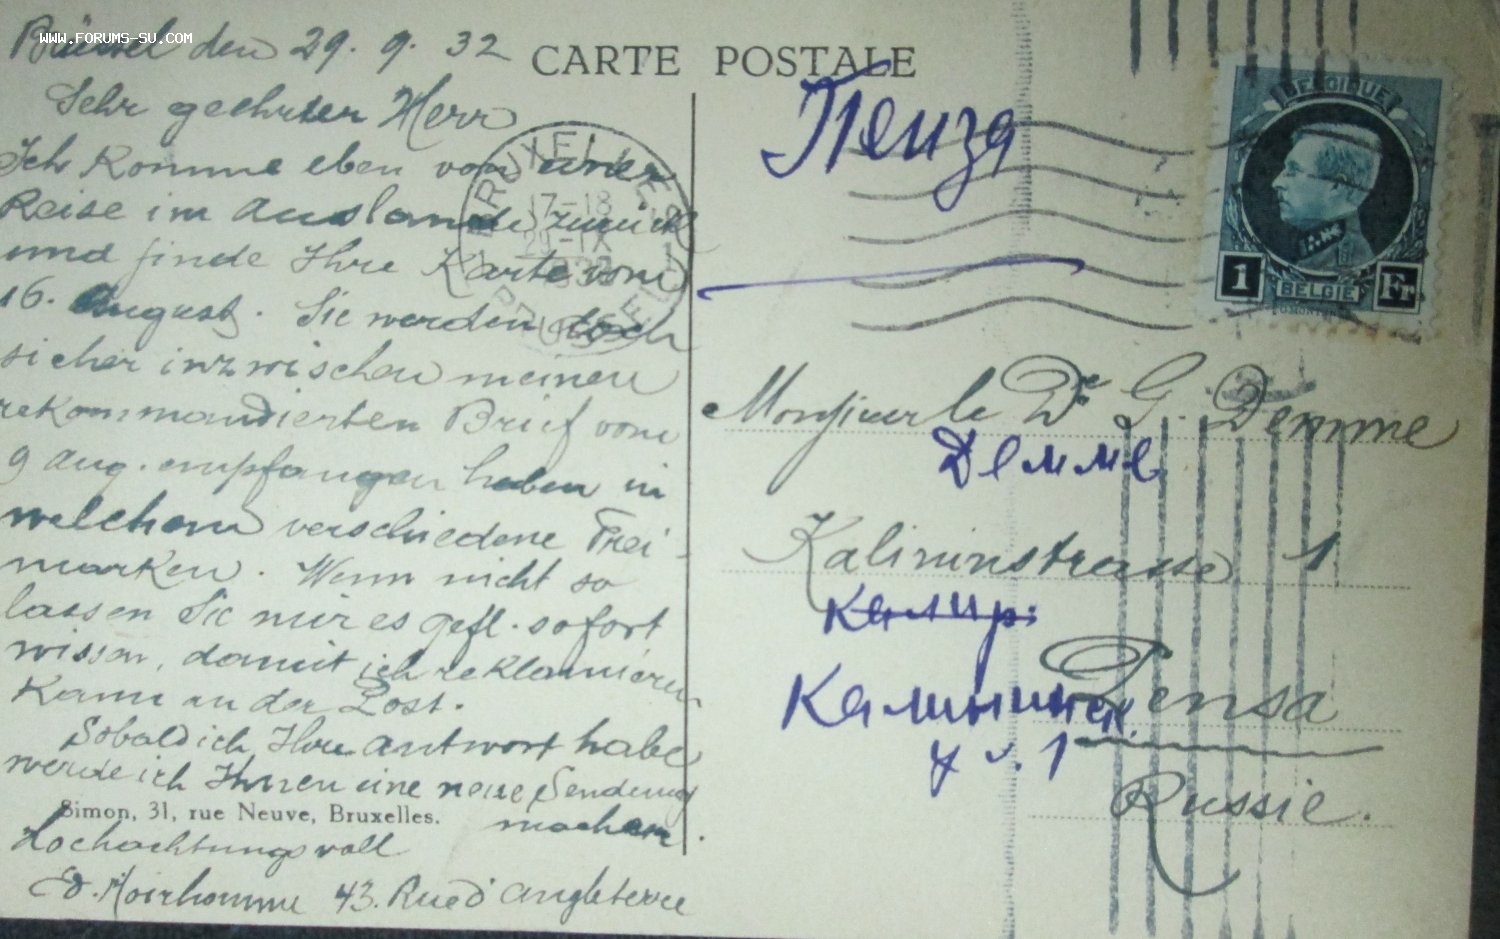 WWW.FORUMS-SU.COM
Brüssel den 29. 9. 32
CARTE POSTALE
Sehr geehrter Herr
Ich komme eben von einer
Reise im Auslande zurück
und finde Ihre Karte vom
16. August. Sie werden doch
sicher inzwischen meinen
rekommandierten Brief vom
9 Aug. empfangen haben in
welchem verschiedene Frei-
marken. Wenn nicht so
lassen Sie mir es gefl. sofort
wissen, damit ich reklamieren
kann an der Post.
Sobald ich Ihre Antwort habe
werde ich Ihnen eine neue Sendung
machen.
Simon, 31, rue Neuve, Bruxelles.
Hochachtungsvoll
43. Rue d'Angleterre
Пенза
Monsieur le Dr G. Demme
Демме
Kalininstrasse 1
Калинр.
Pensa
Калининск.
у л. 1
Russie.
BRUXELLES
17-18
29-IX
BRUSSEL
BELGIQUE
1 Fr
BELGIË